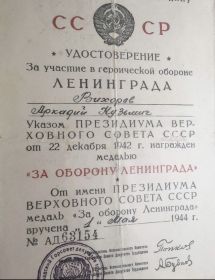 СС СР
УДОСТОВЕРЕНИЕ
За участие в героической обороне
ЛЕНИНГРАДА
Вихорев
Аркадий Кузьмич
Указом ПРЕЗИДИУМА ВЕР-
ХОВНОГО СОВЕТА СССР
от 22 декабря 1942 г. награжден
медалью
«ЗА ОБОРОНУ ЛЕНИНГРАДА»
От имени ПРЕЗИДИУМА
ВЕРХОВНОГО СОВЕТА СССР
медаль «За оборону Ленинграда»
вручена 1 мая 1944 г.
№ АД 68154